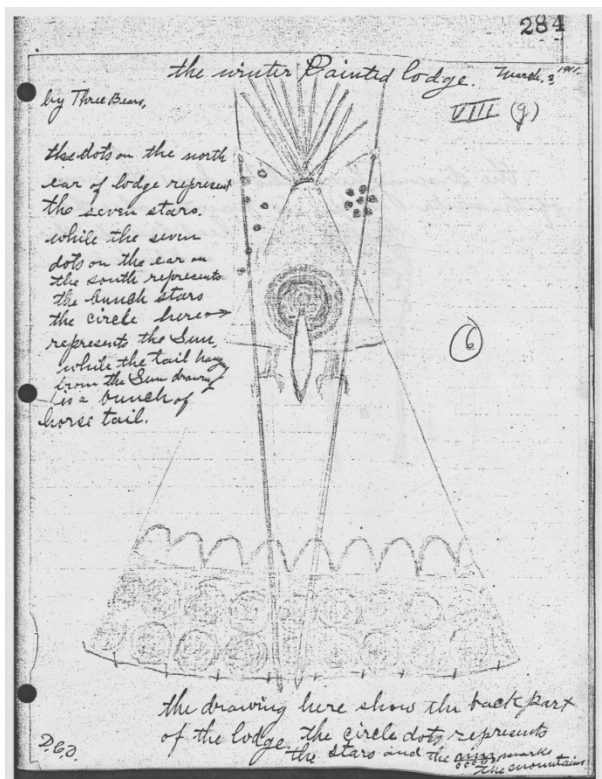 284
the winter Painted lodge. March. 3 1911.
by Three Bears,
VIII (g)
the dots on the north
ear of lodge represent
the seven stars.
while the seven
dots on the ear on
the south represents
the bunch stars
the circle here →
represents the Sun,
while the tail hang
from the Sun drawing
is a bunch of
horse tail.
6
the drawing here show the back part
of the lodge the circle dots represents
the stars and the marks
the mountains